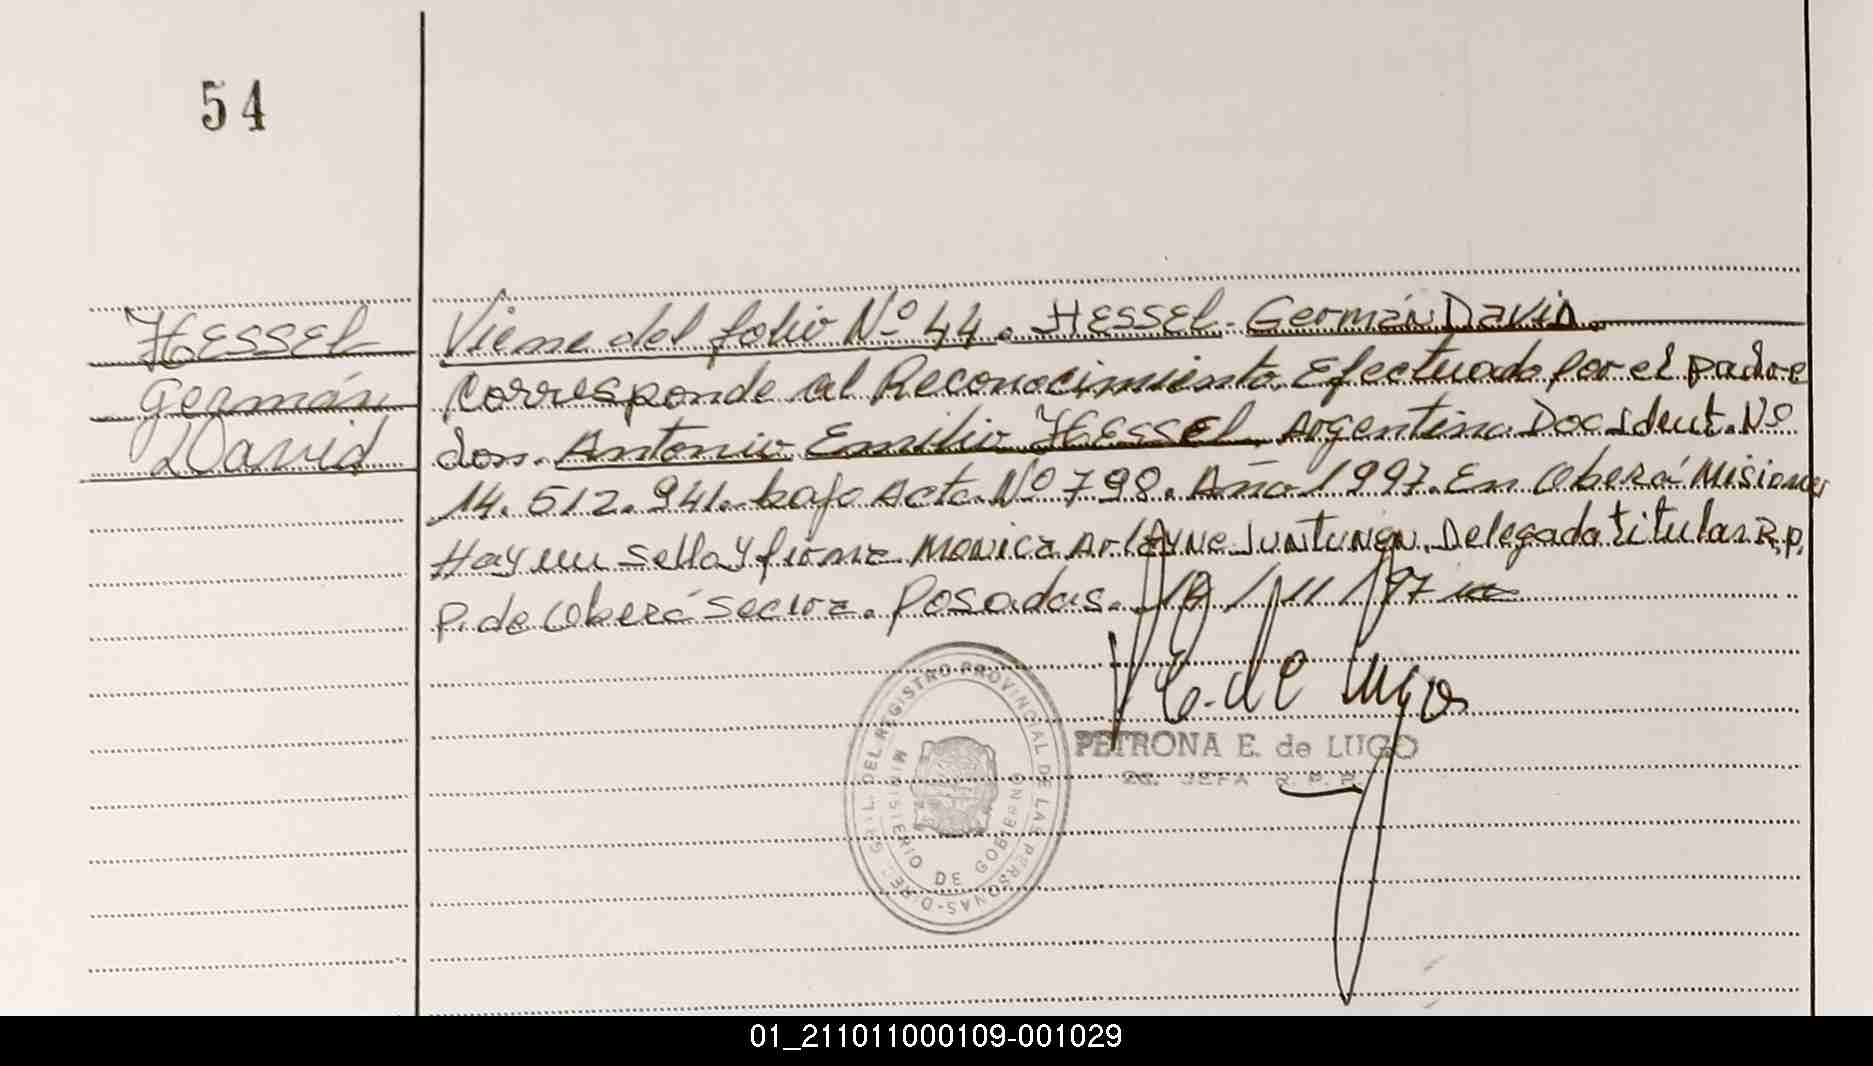 54
Hessel
Germán
David
Viene del folio Nº 44. Hessel - Germán David.
Corresponde al Reconocimiento Efectuado por el padre
don. Antonio Emilio Hessel, Argentino. Doc. Ident. Nº
14.512.941. bajo Acta Nº 798. Año 1997. En Oberá Misiones
Hay un sello y firma Monica Arlayne Juntunen. Delegada titular R.p.
P. de Oberá Sec. Posadas. 18/11/97
P E. de Lugo
PETRONA E. de LUGO
JEFA R. P. P.
DIRE. GRIL. DEL REGISTRO PROVINCIAL DE LAS PERSONAS
MINISTERIO DE GOBIERNO
01_211011000109-001029